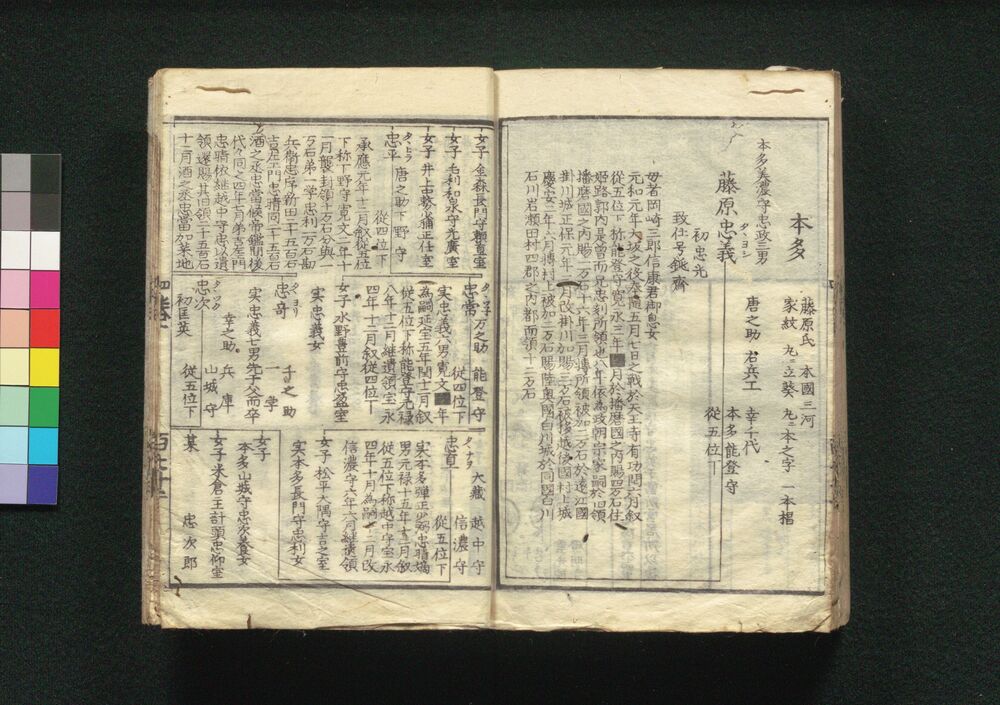 本多
藤原氏 本國三河
家紋 丸ニ立葵 丸ニ本之字 一本杉
本多美濃守忠政三男
藤原忠義
タヽヨシ
初忠光
致仕号鈍齋
唐之助 右兵工
幸千代
本多能登守
從五位下
母者岡崎三郎信康君御息女
元和元年大坂之後奉隨五月七日之戰於天王寺有功同六月叙
從五位下称能登守寛永三年 月於播磨國之内賜四万石住
姫路郭内是曽而兄忠刻所領也八年依為政朝宗家嗣於旧領
播磨國之内賜一万石十六年三月轉所領被加二万石於遠江國
掛川城正保元年三月改掛川加賜三万石被移越後國村上城
慶安二年六月轉村上被加二万石賜陸奥國白川城於同國白川
石川岩瀬田村四郡之内都而領十二万石
女子 金森長門守頼直室
女子 毛利和泉守光廣室
女子 井上中務少輔正任室
タヽヒラ
忠平 唐之助 下野守
從四位下
承應元年十二月叙從五位
下称下野守寛文二年十
一月襲封領十万石分與一
万石弟一学忠利一万石勘
兵衛忠序新田二千五百石
吉左工門忠晴同二千五百石
酒之丞忠當候帝鑑間後
代々同之四年二月弟吉左門
忠晴依継越中守忠以遺
領還賜其旧領二千五百石
十二月酒之丞忠當加某地
忠常 万之助 能登守
從四位下
実忠義六男寛文 年
為嗣延宝五年閏十二月叙
從五位下称能登守元禄
八年十二月継遺領宝永
四年十二月叙從四位下
女子 水野豊前守忠盈室
実忠義女
タヽヨリ
忠奇 千之助
一学
実忠義七男先于父而卒
タヽツク
忠次 幸之助 兵庫
初匡英 山城守
從五位下
タヽナヲ
忠直 大蔵 越中守
信濃守
從五位下
実本多弾正少弼忠晴嫡
男元禄十五年十二月叙
從五位下称越中守宝永
四年十月為嗣十二月改
信濃守六年六月継遺領
女子 松平大隅守吉之室
実本多長門守忠利女
女子
本多山城守忠次養女
女子 米倉主計頭忠仰室
某 忠次郎